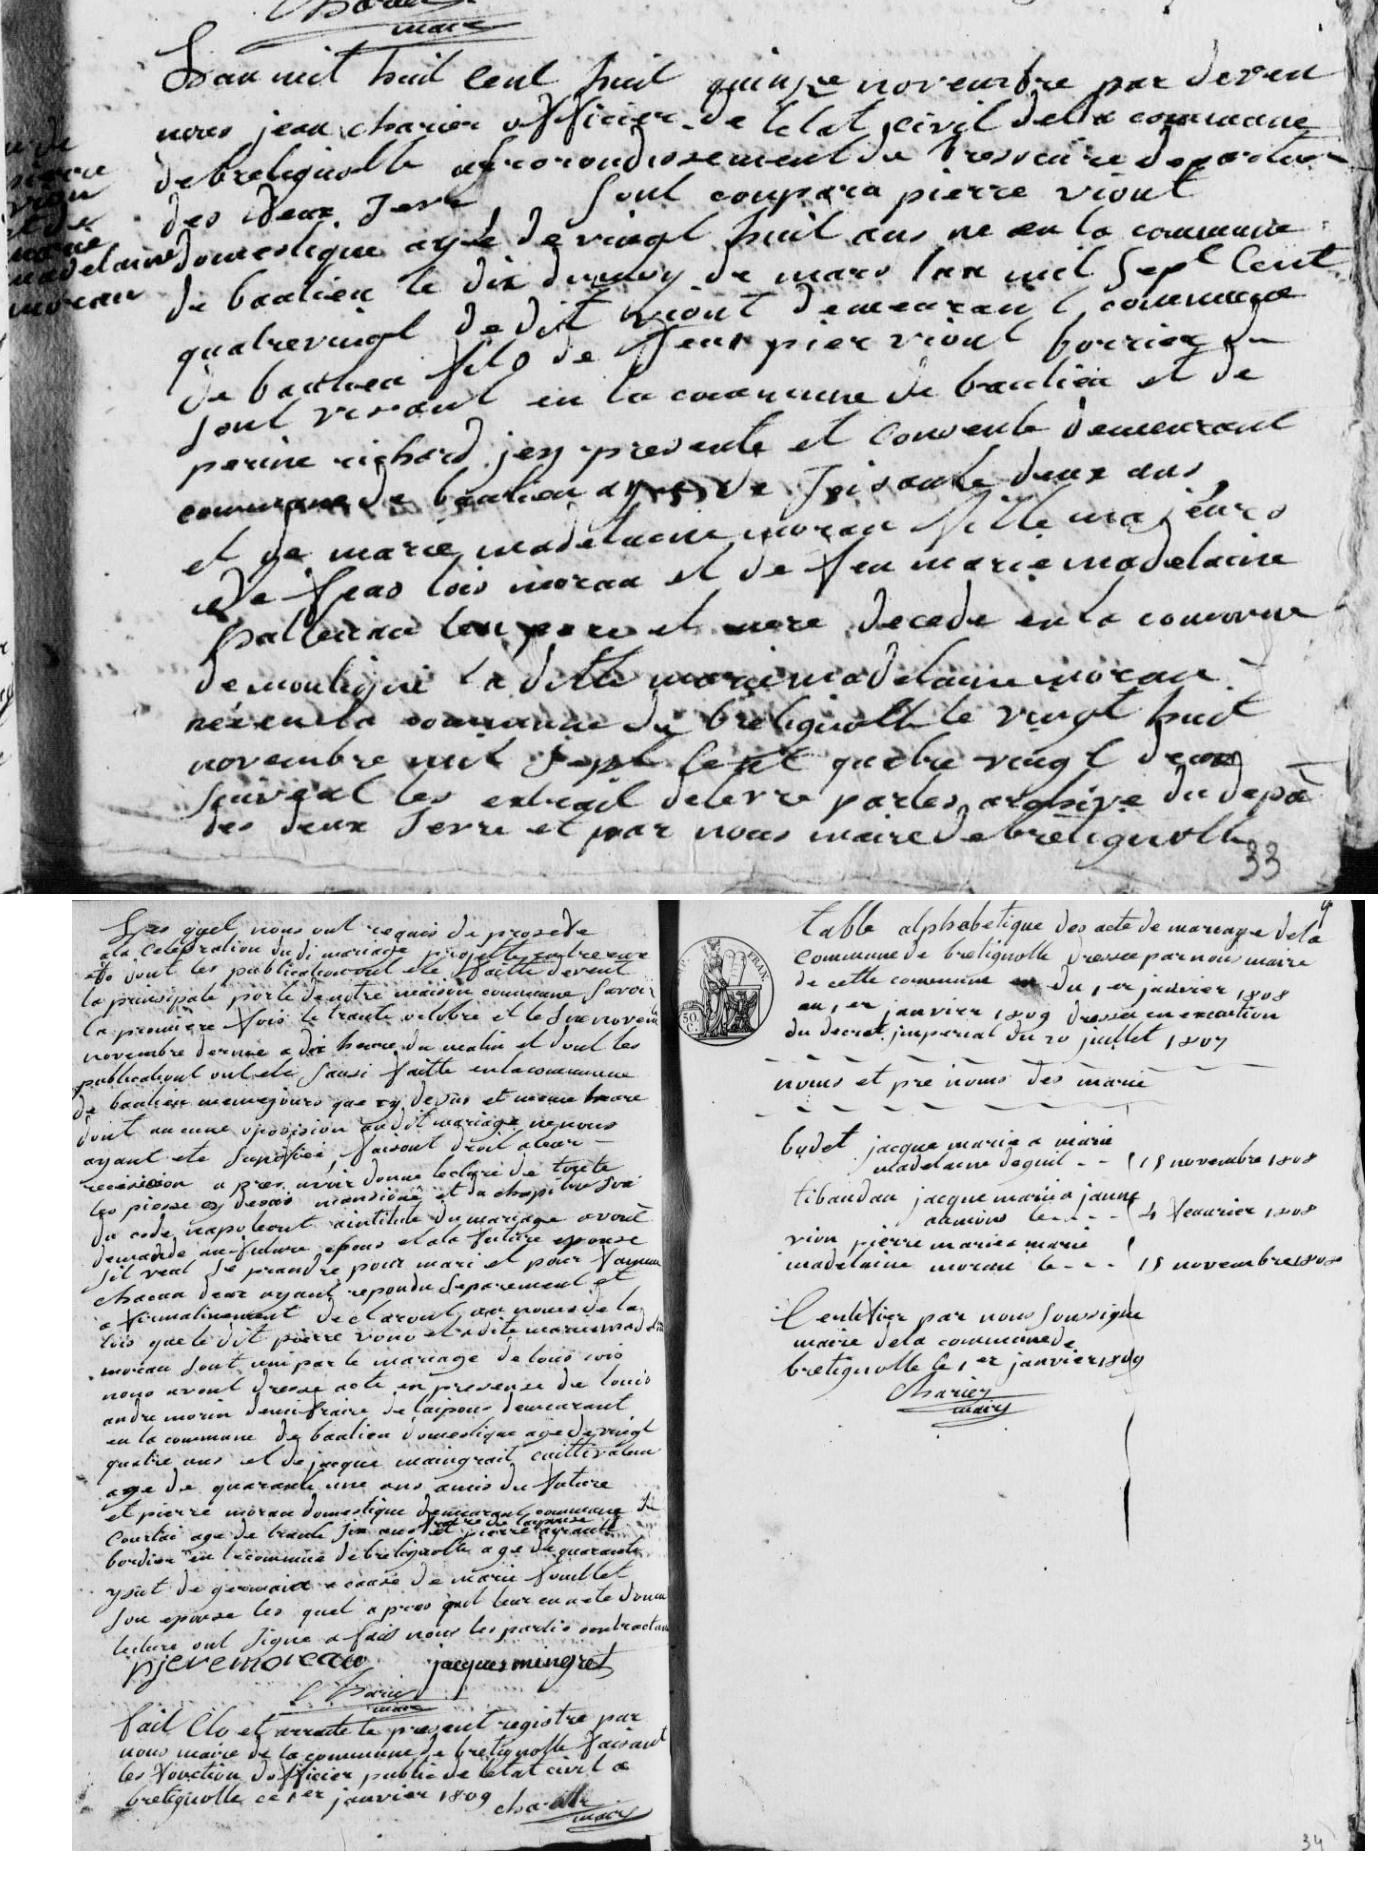 Charier
maire
Lan mil huil Cent huit quinze novembre par deven
nous jean charier officier de letat civil della commune
de bretignolle arorondissement de bresuire departem
des deux Sevre Sont conpara pierre viont
domestique ayé de vingt huil ans ne en la commune
de baulieu le dix de mars lan mil Sept Cent
quatrevingt ledit viont demeurant commune
de baulieu fils de pier viont borrier
Sont vivant en la commune de baulieu et de
perine richard jey presente et Consente demeurant
commune de baulieu ayee de Soisante deux ans
et de marie madelaine morau fille majeure
de feu lois morau et de feu marie madelaine
leur pere et mere decede en la commune
de moutigni la ditte marie madelaine morau
née en la commune de bretignolle le vingt huit
novembre mil Sept Cent quatre vingt deux
Suivent les extrait delevre par les argsive du depà
des deux Sevre et par nous maire de bretignolle
33
pierre
vion
et de
marie
madelaine
moreau
Les quel nous ont requis de prosede
a la Celebration dudi mariage projette entre eux
et dont les publication ont ete faitte devent
la prinsipale porte de notre maison commune Savoir
la premiere fois le trante octobre et le Six novem
novembre dernie a dix heure du matin et dont les
publicationt ont ete Sausi faitte en la commune
de baulieu meme jours que sy desus et meme heure
dont aucune oposision audit mariage ne nous
ayant ete Sinifiee faisont droit a leur
requision a pres avoir donne lecture de toute
les piesse sy desus mansione et du chapitre Six
du code napoleont aintitule du mariage avont
demande au future epous et a la future epouse
Sil veul Se prandre pour mari et pour famme
chacun deux ayant repondu Separement et
afirmativement declaront au nom de la
lois que le dit pierre viont et la dite marie madelai
moreau Sont uni par le mariage de tous cois
nous avont dresse acte en presense de louis
andre morin demi fraire de laipous demeurant
en la commune de baulieu domestique age de vingt
quatre ans et de jacque maingrait cultivateur
age de quarante une ans amis du future
et pierre morau domestique demeurant commune de
Courlai age de trante Six ans frere de laipouse et pierre ayrault
bordier en la commune de bretignolle age de quarante
de germain a cause de marie
Son epouse les quel apres quil leur en a ete donne
lecture ont Signe a fais nous les partis contractan
pjere moreau jacques mingret
Charier
maire
fait Clo et arraite le present registre par
nous maire de la commune de bretignolle faisant
les fonction dofficier public de letat civil a
bretignolle ce 1er janvier 1809 Charier
maire
9
table alphabetique des acte de mariage de la
Commune de bretignolle dresse par nous maire
de cette commune du 1er janvier 1808
au 1er janvier 1809 dresse en execution
du decret imperial du 20 juillet 1807
noms et pre noms des marie
bodet jacque marie a marie
madelaine deguil - - 15 novembre 1808
tibaudau jacque marie a jeanne
le - - - 4 feaurier 1808
vion pierre marie a marie
madelaine morau le - - - 15 novembre 1808
Certifier par nous Soussigne
maire de la commune de
bretignolle le 1er janvier 1809
Charier
maire
34